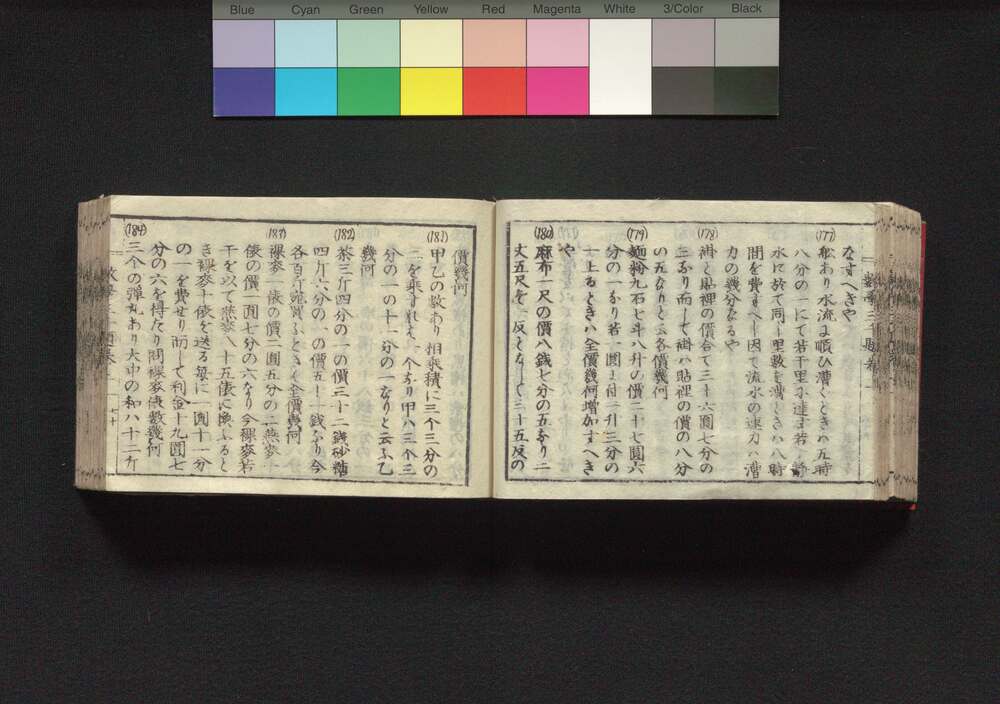 Blue Cyan Green Yellow Red Magenta White 3/Color Black
なすへきや
(177)
船あり水流に順ひ漕くときハ五時
八分の一にて若干里に達す若し静
水に於て同し里數を漕くときハ八時
間を費すへし因て流水の速力ハ漕
力の幾分なるや
(178)
裲と貼裡の價合て三十六圓七分の
三なり而して裲ハ貼裡の價の八分
の五なりと云各價幾何
(179)
麺粉九石七斗八升の價二十七圓六
分の一なり若一圓に付一升三分の
一上るときハ全價幾何增加すへき
や
(180)
麻布一尺の價八錢七分の五なり二
丈五尺を一反となして三十五反の
價幾何
(181)
甲乙の數あり相乘積に三個三分の
二を乘すれハ一个なり甲ハ三个三
分の一の十一分の一なりと云ふ乙
幾何
(182)
茶三斤四分の一の價三十二錢砂糖
四斤六分の一の價五十一錢なり今
各百斤宛買ふときハ全價幾何
(183)
裸麥一俵の價二圓五分の二燕麥一
俵の價一圓七分の六なり今裸麥若
干を以て燕麥八十五俵に換ふると
き裸麥十俵を送る每に一圓十一分
の一を費せり而して利金十九圓七
分の六を得たり問裸麥俵數幾何
(184)
三个の彈丸あり大中の和ハ十二斤